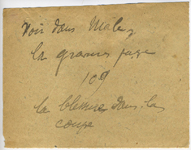 Voir dans Malery
la grande page
109
la blessure dans la
coupe